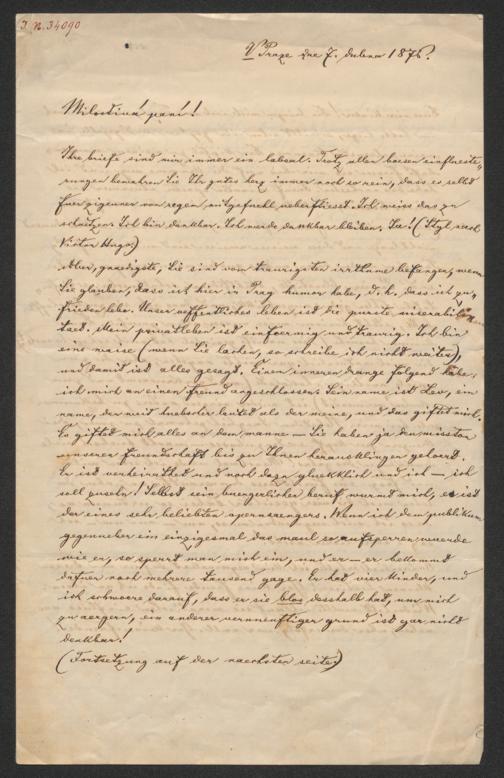 I. N. 34090
V Praze dne 7. dubna 1876.
Milostivá paní!
Ihre briefe sind mir immer ein labsal. Trotz allen boesen einflueste-
rungen bewahren Sie Ihr gutes herz immer noch so rein, dass es selbst
fuer zigeuner von regem mitgefuehl ueberfliesst. Ich weiss das zu
schaetzen. Ich bin dankbar. Ich werde dankbar bleiben. Ja! (Styl nach
Victor Hugo)
Aber, gnaedigste, Sie sind vom traurigsten irrthume befangen, wenn
Sie glauben, dass ich hier in Prag humor habe, d. h. dass ich zu-
frieden lebe. Unser oeffentliches leben ist die purste miserabili-
taet. Mein privatleben ist einfoermig und traurig. Ich bin
eine waise (wenn Sie lachen, so schreibe ich nicht weiter),
und damit ist alles gesagt. Einem inneren drange folgend habe
ich mich an einen freund angeschlossen. Sein name ist Lev, ein
name, der weit huebscher lautet als der meine, und das giftet mich.
Es giftet mich alles an dem manne — Sie haben ja den misston
unserer freundschaft bis zu Ihnen herausklingen gehoert.
Er ist verheirathet und noch dazu gluecklich und ich — ich
soll zusehn! Selbst sein buergerlicher beruf wurmt mich, es ist
der eines sehr beliebten opernsaengers. Wenn ich dem publikum
gegenueber ein einzigesmal das maul so aufsperren wuerde
wie er, so sperrt man mich ein, und er — er bekommt
dafuer noch mehrere tausend gage. Er hat vier kinder, und
ich schwoere darauf, dass er sie blos desshalb hat, um mich
zu aergern, ein anderer vernuenftiger grund ist gar nicht
denkbar!
(Fortsetzung auf der naechsten seite.)